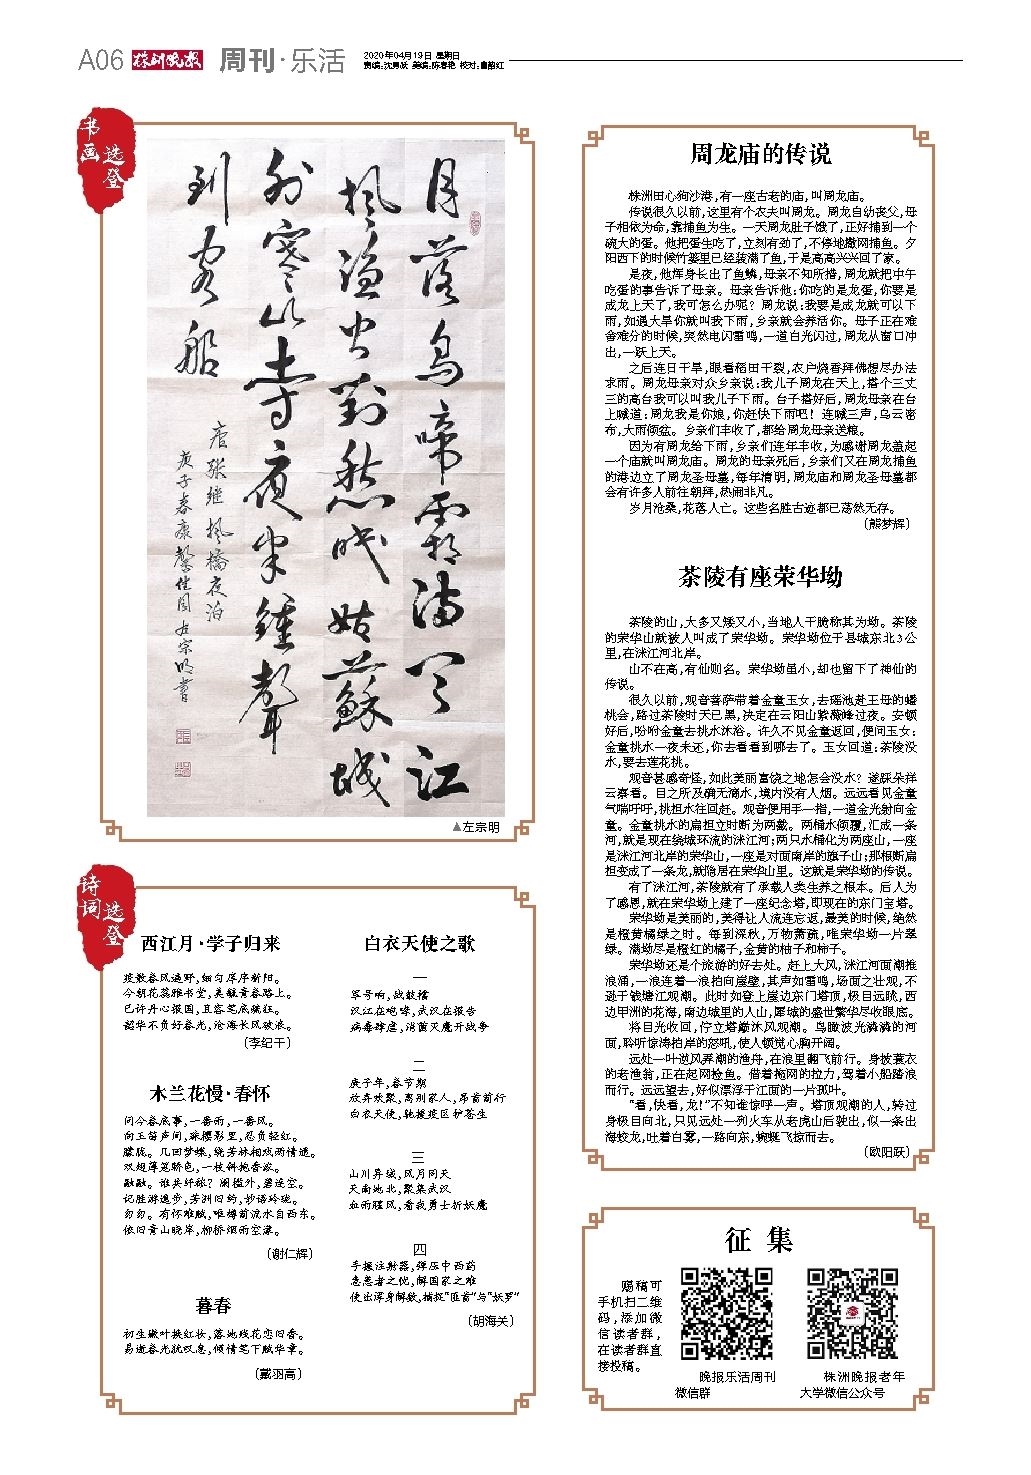 A06
株洲晚报
周刊·乐活
2020年04月19日 星期日
书画
选登
月落乌啼霜满天江
枫渔火对愁眠姑苏城
外寒山寺夜半钟声
到客船
唐张继枫桥夜泊
▲左宗明
诗词
选登
西江月·学子归来
今朝花蕊雅书堂,美颜青春路上。
已许丹心报国,且容笔底疏狂。
韶华不负好春光,沧海长风破浪。
(李纪平)
木兰花慢·春怀
问今春底事,一番雨,一番风。
双翅薄笼娇色,一枝斜抱香浓。
依旧青山晓岸,柳桥烟雨空濛。
(谢仁辉)
暮春
初生嫩叶换红妆,落地残花恋旧香。
易逝春光犹叹息,倾情笔下赋华章。
(戴羽高)
白衣天使之歌
一
军号响,战鼓擂
汉江在咆哮,武汉在报告
病毒肆虐,消菌灭魔开战争
二
庚子年,春节期
放弃欢聚,离别家人,昂首前行
白衣天使,驰援疫区护苍生
三
山川异域,风月同天
天南地北,聚集武汉
血雨腥风,看我勇士斩妖魔
四
手握注射器,弹压中西药
急患者之忧,解国家之难
使出浑身解数,捕捉"匪首"与"妖罗"
(胡海关)
周龙庙的传说
株洲田心狗沙港,有一座古老的庙,叫周龙庙。
传说很久以前,这里有个农夫叫周龙。周龙自幼丧父,母
子相依为命,靠捕鱼为生。一天周龙肚子饿了,正好捕到一个
碗大的蛋。他把蛋生吃了,立刻有劲了,不停地撒网捕鱼。夕
阳西下的时候竹篓里已经装满了鱼,于是高高兴兴回了家。
是夜,他浑身长出了鱼鳞,母亲不知所措,周龙就把中午
吃蛋的事告诉了母亲。母亲告诉他:你吃的是龙蛋,你要是
成龙上天了,我可怎么办呢?周龙说:我要是成龙就可以下
雨,如遇大旱你就叫我下雨,乡亲就会养活你。母子正在难
舍难分的时候,突然电闪雷鸣,一道白光闪过,周龙从窗口冲
出,一跃上天。
之后连日干旱,眼看稻田干裂,农户烧香拜佛想尽办法
求雨。周龙母亲对众乡亲说:我儿子周龙在天上,搭个三丈
三的高台我可以叫我儿子下雨。台子搭好后,周龙母亲在台
上喊道:周龙我是你娘,你赶快下雨吧!连喊三声,乌云密
布,大雨倾盆。乡亲们丰收了,都给周龙母亲送粮。
因为有周龙给下雨,乡亲们连年丰收,为感谢周龙盖起
一个庙就叫周龙庙。周龙的母亲死后,乡亲们又在周龙捕鱼
的港边立了周龙圣母墓,每年清明,周龙庙和周龙圣母墓都
会有许多人前往朝拜,热闹非凡。
岁月沧桑,花落人亡。这些名胜古迹都已荡然无存。
(熊梦辉)
茶陵有座荣华坳
茶陵的山,大多又矮又小,当地人干脆称其为坳。茶陵
的荣华山就被人叫成了荣华坳。荣华坳位于县城东北3公
里,在洣江河北岸。
山不在高,有仙则名。荣华坳虽小,却也留下了神仙的
传说。
很久以前,观音菩萨带着金童玉女,去瑶池赴王母的蟠
桃会,路过茶陵时天已黑,决定在云阳山紫薇峰过夜。安顿
好后,吩咐金童去挑水沐浴。许久不见金童返回,便问玉女:
金童挑水一夜未还,你去看看到哪去了。玉女回道:茶陵没
水,要去莲花挑。
观音甚感奇怪,如此美丽富饶之地怎会没水?遂踩朵祥
云察看。目之所及确无滴水,境内没有人烟。远远看见金童
气喘吁吁,挑担水往回赶。观音便用手一指,一道金光射向金
童。金童挑水的扁担立时断为两截。两桶水倾覆,汇成一条
河,就是现在绕城环流的洣江河;两只水桶化为两座山,一座
是洣江河北岸的荣华山,一座是对面南岸的旗子山;那根断扁
担变成了一条龙,就隐居在荣华山里。这就是荣华坳的传说。
有了洣江河,茶陵就有了承载人类生养之根本。后人为
了感恩,就在荣华坳上建了一座纪念塔,即现在的东门宝塔。
荣华坳是美丽的,美得让人流连忘返,最美的时候,绝然
是橙黄橘绿之时。每到深秋,万物萧疏,唯荣华坳一片翠
绿。满坳尽是橙红的橘子,金黄的柚子和柿子。
荣华坳还是个旅游的好去处。赶上大风,洣江河面潮推
浪涌,一浪连着一浪拍向崖壁,其声如雷鸣,场面之壮观,不
逊于钱塘江观潮。此时如登上崖边东门塔顶,极目远眺,西
边甲洲的花海,南边城里的人山,犀城的盛世繁华尽收眼底。
将目光收回,伫立塔巅沐风观潮。鸟瞰波光粼粼的河
面,聆听惊涛拍岸的怒吼,使人顿觉心胸开阔。
远处一叶逆风弄潮的渔舟,在浪里翻飞前行。身披蓑衣
的老渔翁,正在起网捡鱼。借着拖网的拉力,驾着小船踏浪
而行。远远望去,好似漂浮于江面的一片孤叶。
"看,快看,龙!"不知谁惊呼一声。塔顶观潮的人,转过
身极目向北,只见远处一列火车从老虎山后驶出,似一条出
海蛟龙,吐着白雾,一路向东,蜿蜒飞掠而去。
(欧阳跃)
征集
赐稿可
手机扫二维
码,添加微
信读者群,
在读者群直
接投稿。
晚报乐活周刊
微信群
株洲晚报老年
大学微信公众号